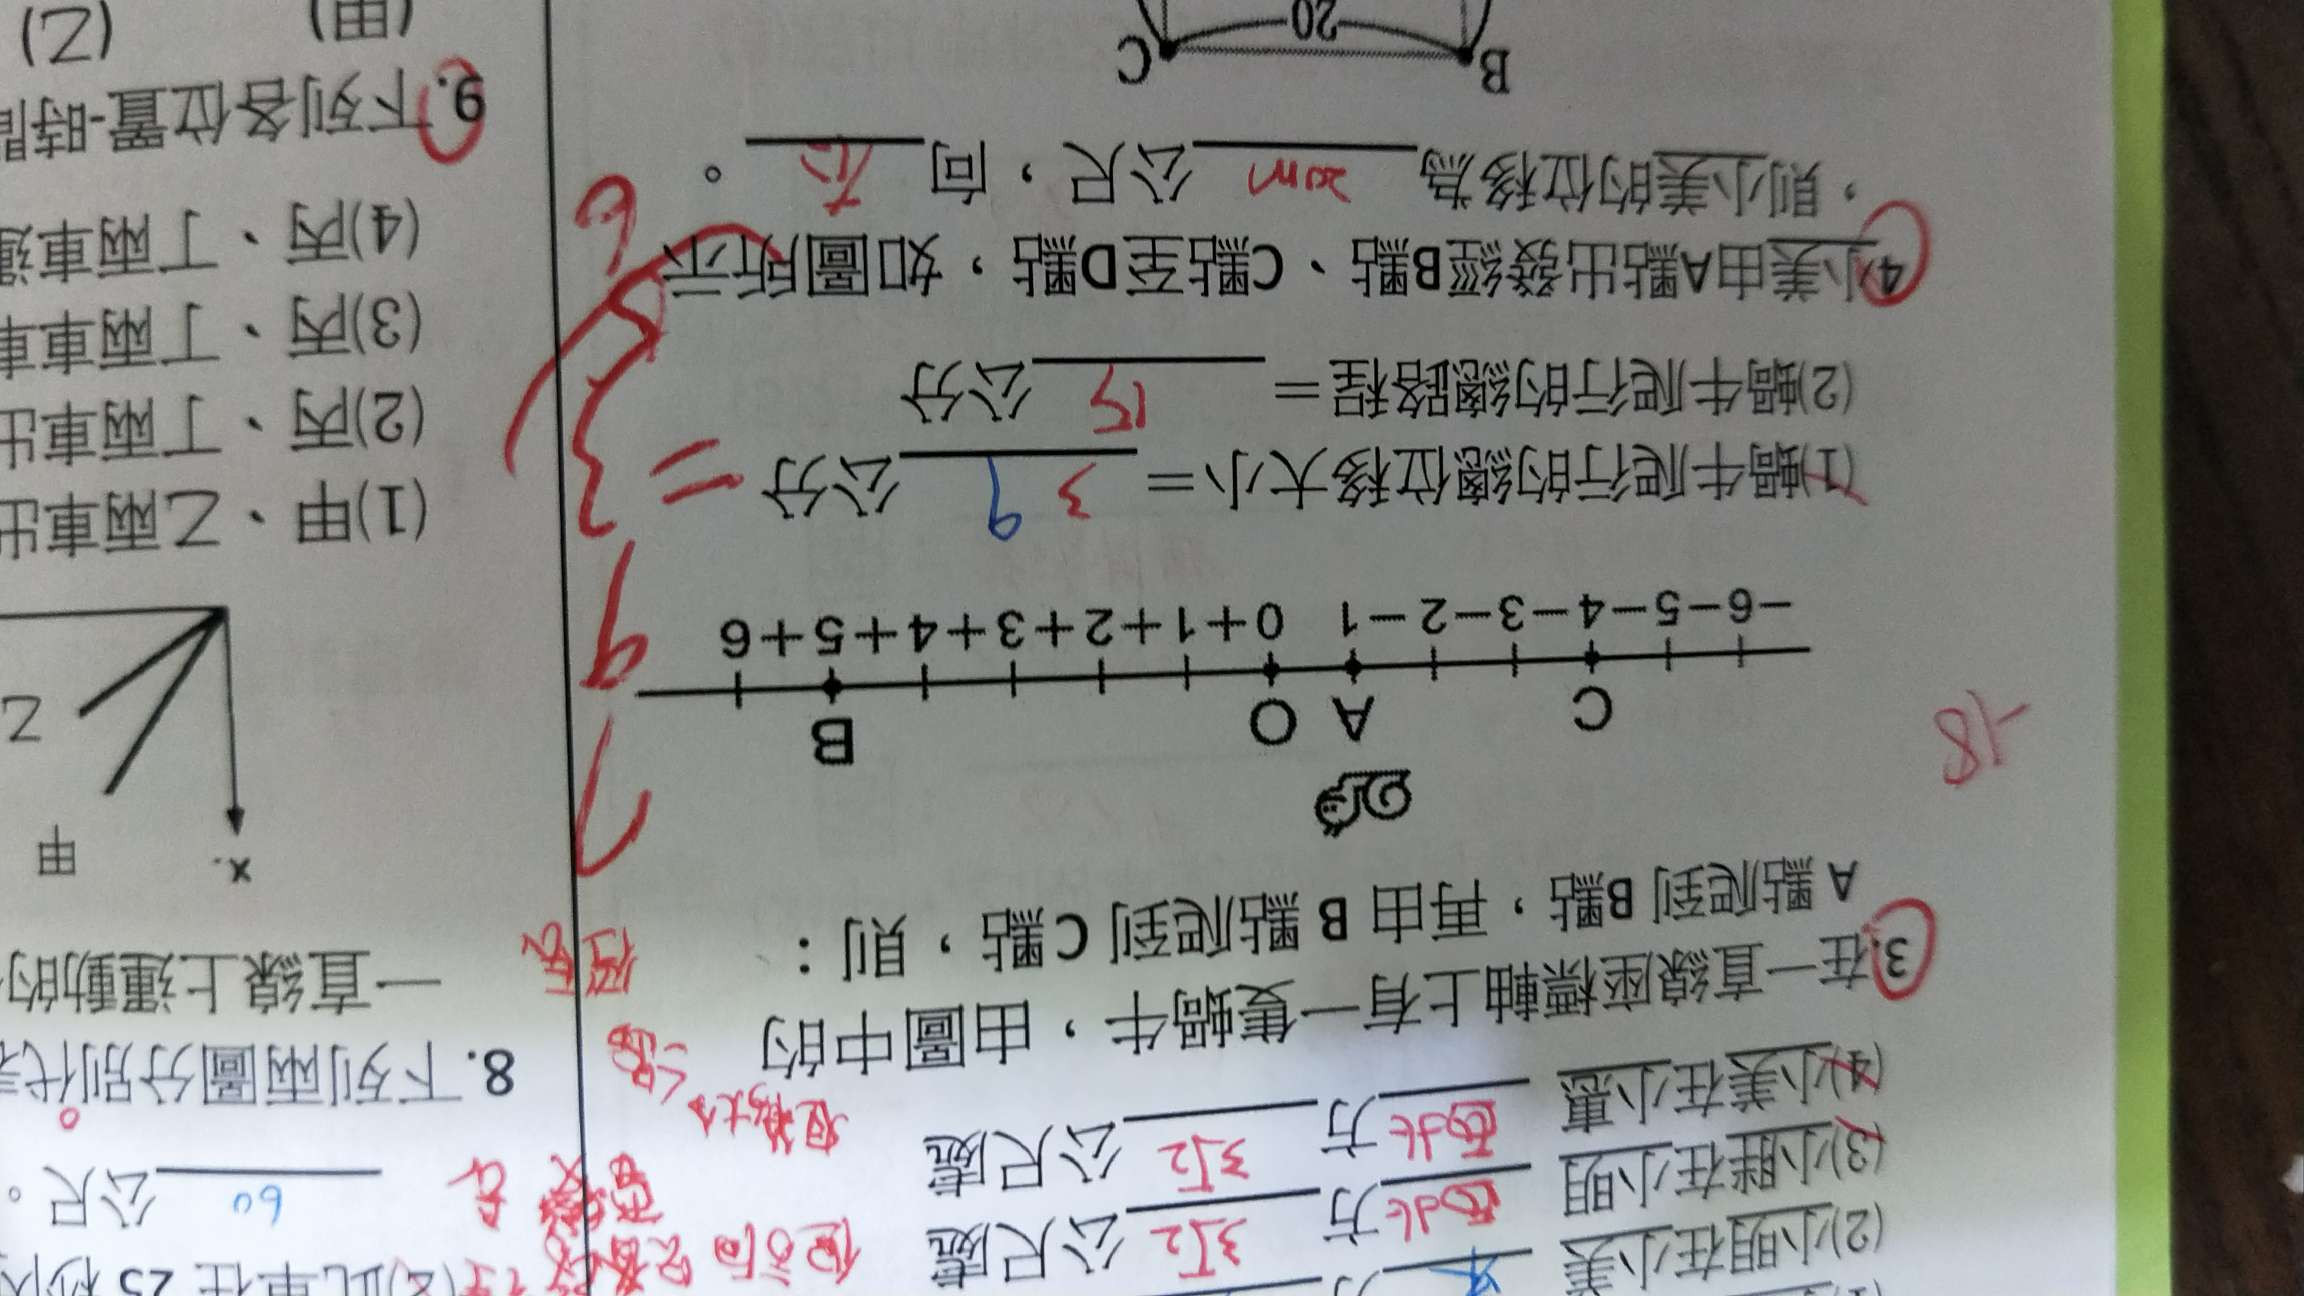 (2)小明在小美
(3)小胖在小明 西北 方 3√2 公尺處
(4)小美在小惠 西北 方 3√2 公尺處
3.在一直線座標軸上有一隻蝸牛，由圖中的
A 點爬到 B點，再由 B 點爬到 C點，則：
C A O B
-6-5-4-3-2-1 0+1+2+3+4+5+6
(1)蝸牛爬行的總位移大小＝ 3 9 公分
(2)蝸牛爬行的總路程＝ 15 公分
4.小美由A點出發經B點、C點至D點，如圖所示
，則小美的位移為 20m 公尺，向 右 。
B 20 C
-18
7
9
3
=
6
(2)此車在 25 秒內
60 公尺。
8. 下列兩圖分別代表
一直線上運動的
x
甲
乙
(1)甲、乙兩車出
(2)丙、丁兩車出
(3)丙、丁兩車車
(4)丙、丁兩車運
9.下列各位置-時間
(甲) (乙)